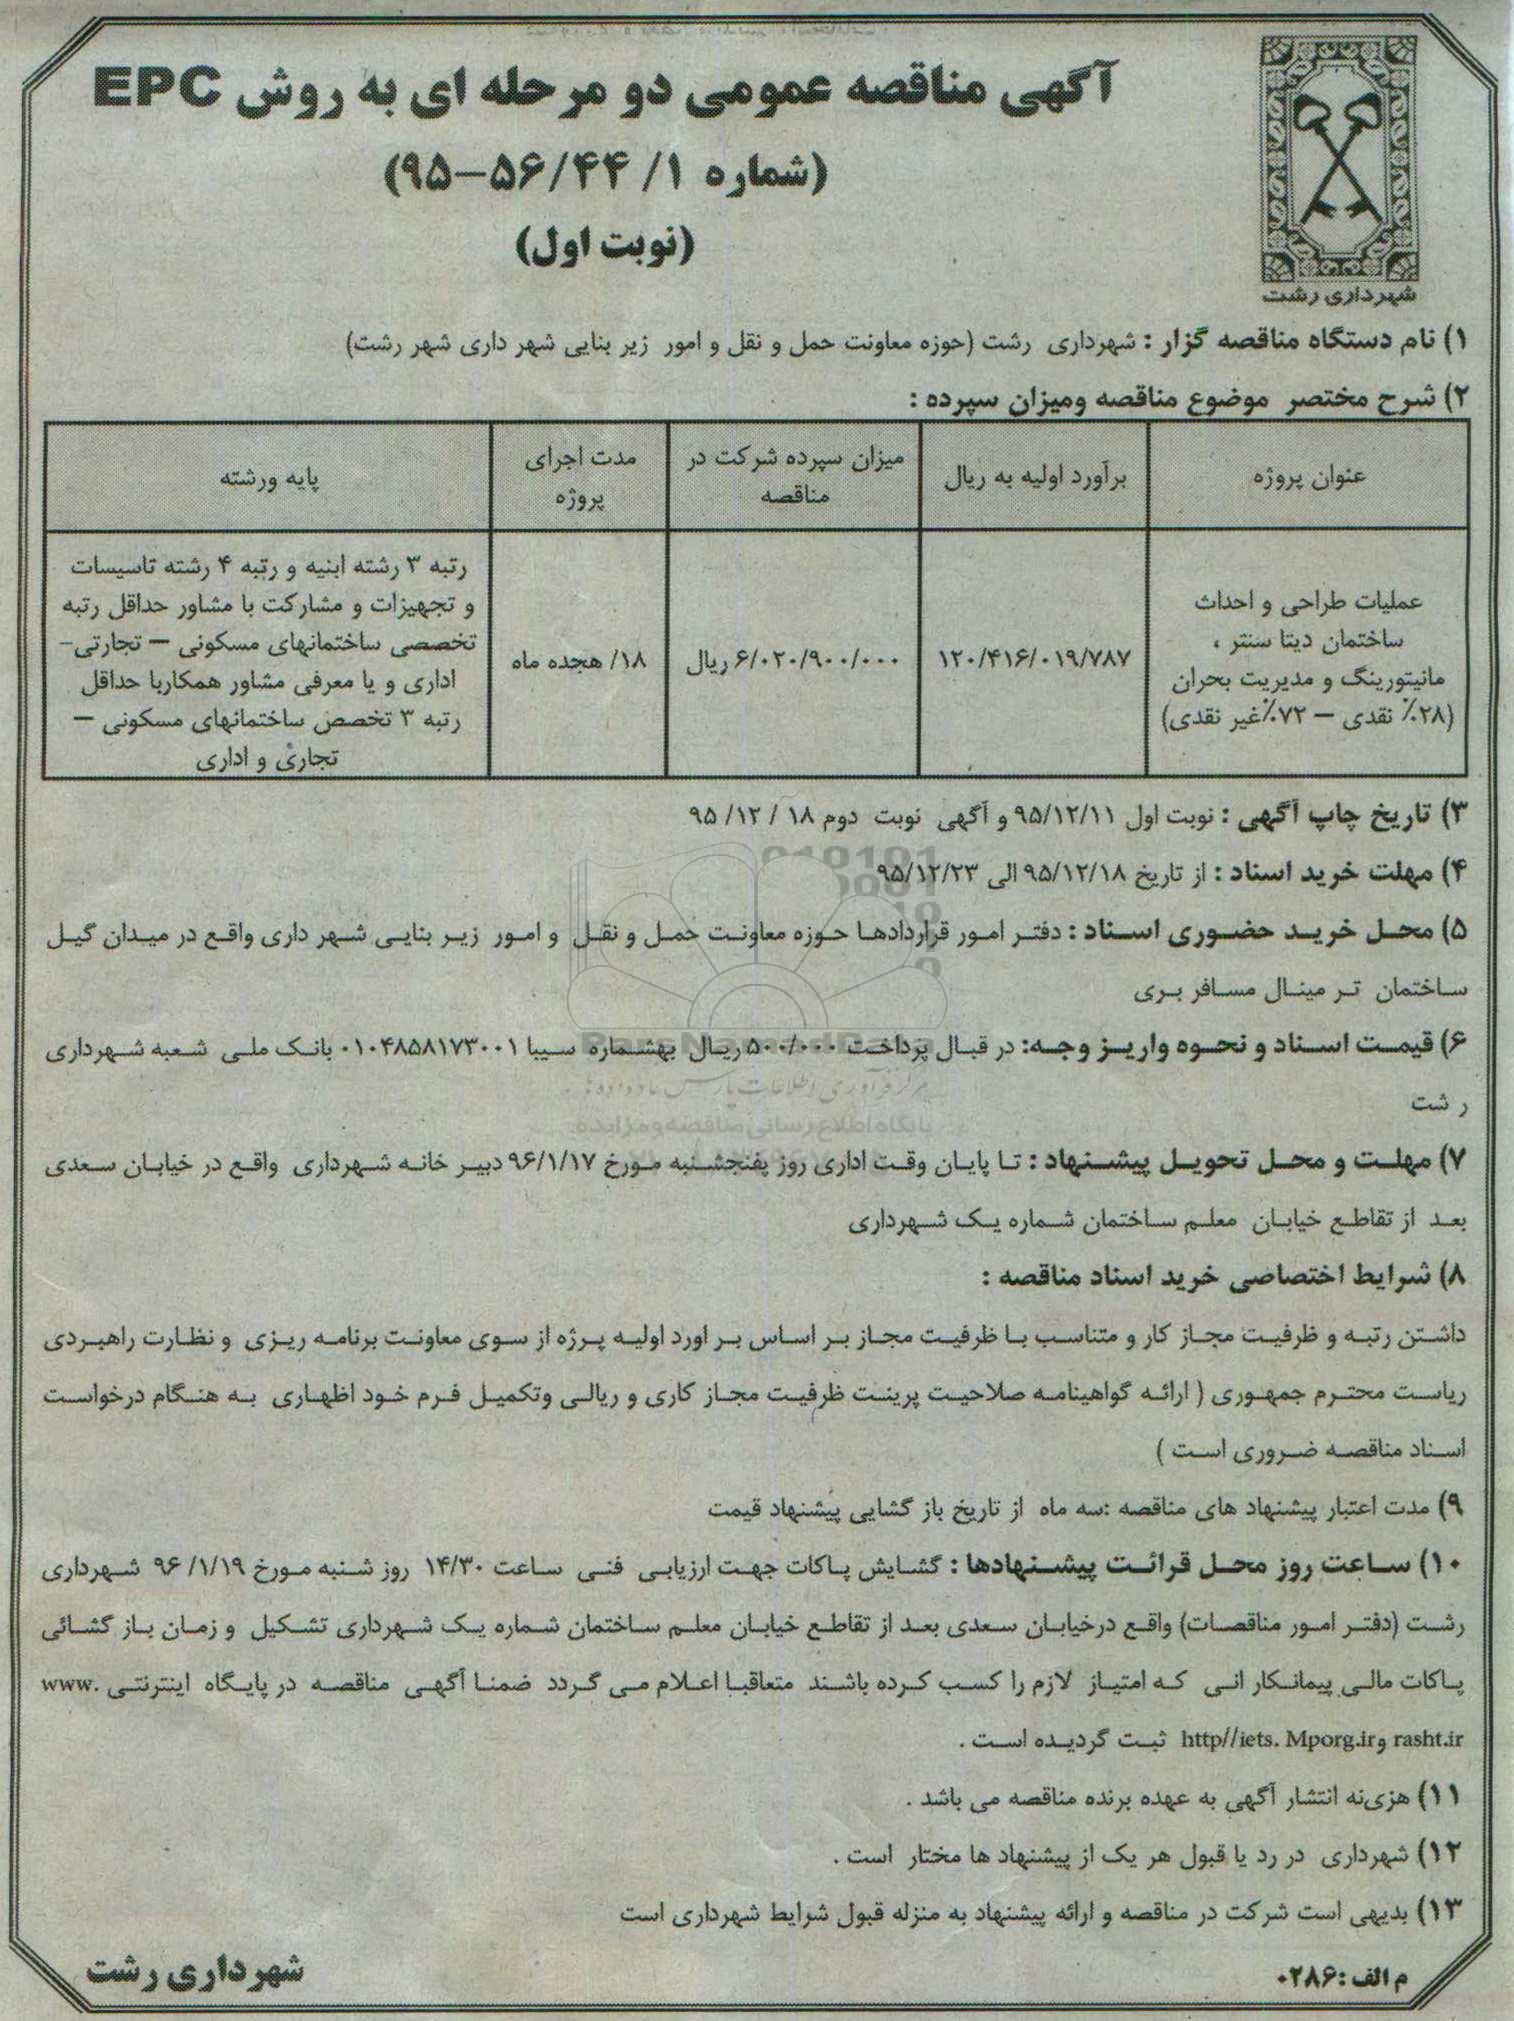 آگهی مناقصه عمومی دو مرحله ای به روش EPC
(شماره ۱/ ۵۶/۴۴-۹۵)
(نوبت اول)
شهرداری رشت
۱) نام دستگاه مناقصه گزار : شهرداری رشت (حوزه معاونت حمل و نقل و امور زیر بنایی شهر داری شهر رشت)
۲) شرح مختصر موضوع مناقصه ومیزان سپرده :
عنوان پروژه
برآورد اولیه به ریال
میزان سپرده شرکت در
مناقصه
مدت اجرای
پروژه
پایه ورشته
عملیات طراحی و احداث
ساختمان دیتا سنتر ،
مانیتورینگ و مدیریت بحران
(۲۸٪ نقدی – ۷۲٪غیر نقدی)
۱۲۰/۴۱۶/۰۱۹/۷۸۷
۶/۰۲۰/۹۰۰/۰۰۰ ریال
۱۸/ هجده ماه
رتبه ۳ رشته ابنیه و رتبه ۴ رشته تاسیسات
و تجهیزات و مشارکت با مشاور حداقل رتبه
تخصصی ساختمانهای مسکونی – تجارتی-
اداری و یا معرفی مشاور همکاربا حداقل
رتبه ۳ تخصص ساختمانهای مسکونی –
تجاری و اداری
۳) تاریخ چاپ آگهی : نوبت اول ۹۵/۱۲/۱۱ و آگهی نوبت دوم ۱۸ / ۱۲/ ۹۵
۴) مهلت خرید اسناد : از تاریخ ۹۵/۱۲/۱۸ الی ۹۵/۱۲/۲۳
۵) محل خرید حضوری اسناد : دفتر امور قراردادها حوزه معاونت حمل و نقل و امور زیر بنایی شهر داری واقع در میدان گیل
ساختمان تر مینال مسافر بری
۶) قیمت اسناد و نحوه واریز وجه: در قبال پرداخت ۵۰۰/۰۰۰ ریال بهشماره سیبا ۰۱۰۴۸۵۸۱۷۳۰۰۱ بانک ملی شعبه شهرداری
ر شت
ParsNamadData
مرکز فرآوری اطلاعات پارس نماد داده ها
پایگاه اطلاع رسانی مناقصه و مزایده
۷) مهلت و محل تحویل پیشنهاد : تا پایان وقت اداری روز پفنجشنبه مورخ ۹۶/۱/۱۷ دبیر خانه شهرداری واقع در خیابان سعدی
بعد از تقاطع خیابان معلم ساختمان شماره یک شهرداری
۸) شرایط اختصاصی خرید اسناد مناقصه :
داشتن رتبه و ظرفیت مجاز کار و متناسب با ظرفیت مجاز بر اساس بر اورد اولیه پرژه از سوی معاونت برنامه ریزی و نظارت راهبردی
ریاست محترم جمهوری ( ارائه گواهینامه صلاحیت پرینت ظرفیت مجاز کاری و ریالی وتکمیل فرم خود اظهاری به هنگام درخواست
اسناد مناقصه ضروری است )
۹) مدت اعتبار پیشنهاد های مناقصه :سه ماه از تاریخ باز گشایی پیشنهاد قیمت
۱۰) ساعت روز محل قرائت پیشنهادها : گشایش پاکات جهت ارزیابی فنی ساعت ۱۴/۳۰ روز شنبه مورخ ۹۶ /۱/۱۹ شهرداری
رشت (دفتر امور مناقصات) واقع درخیابان سعدی بعد از تقاطع خیابان معلم ساختمان شماره یک شهرداری تشکیل و زمان باز گشائی
پاکات مالی پیمانکار انی که امتیاز لازم را کسب کرده باشند متعاقبا اعلام می گردد ضمنا آگهی مناقصه در پایگاه اینترنتی www.
rasht.ir و http//iets. Mporg.ir ثبت گردیده است .
۱۱) هزی‌نه انتشار آگهی به عهده برنده مناقصه می باشد .
۱۲) شهرداری در رد یا قبول هر یک از پیشنهاد ها مختار است .
۱۳) بدیهی است شرکت در مناقصه و ارائه پیشنهاد به منزله قبول شرایط شهرداری است
م الف :۰۲۸۶
شهرداری رشت